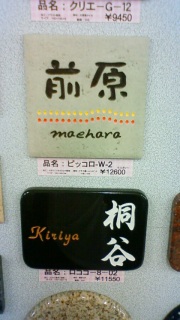 品名：クリエーG-12
￥9450
前原
maehara
品名：ピッコロ-W-2
￥12600
桐谷
Kiriya
品名：ロココ-S-02
￥11550